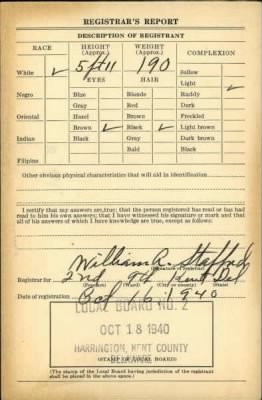 REGISTRAR'S REPORT
DESCRIPTION OF REGISTRANT
RACE HEIGHT (Approx.) WEIGHT (Approx.) COMPLEXION
5 ft 11 190 Sallow
White ✓ EYES HAIR Light ✓
Negro Blue Blonde Ruddy
Gray Red Dark
Oriental Hazel Brown Freckled
Brown ✓ Black ✓ Light brown
Indian Black Gray Dark brown
Bald Black
Filipino
Other obvious physical characteristics that will aid in identification
I certify that my answers are true; that the person registered has read or has had
read to him his own answers; that I have witnessed his signature or mark and that
all of his answers of which I have knowledge are true, except as follows:
William R. Stafford
(Signature of registrar)
Registrar for 2nd 9th Kent Del
(Precinct) (Ward) (City or county) (State)
Date of registration Oct 16 1940
LOCAL BOARD NO. 2
OCT 18 1940
HARRINGTON, KENT COUNTY
DELAWARE
(STAMP OF LOCAL BOARD)
(The stamp of the Local Board having jurisdiction of the registrant
shall be placed in the above space.)